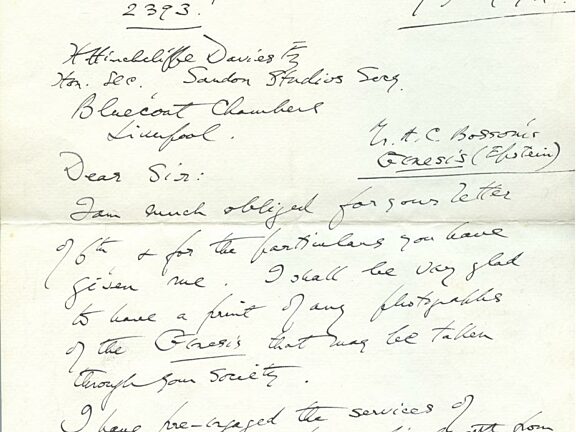 2393.
H Hinchcliffe Davies Esq
Hon. Sec. Sandon Studios Socy.
Bluecoat Chambers
Liverpool.
Mr. A. C. Bossom's
Genesis (Epstein)
Dear Sir:
I am much obliged for your letter
of 6th & for the particulars you have
given me. I shall be very glad
to have a print of any photographs
of the Genesis that may be taken
through your Society.
I have pre-engaged the services of
from